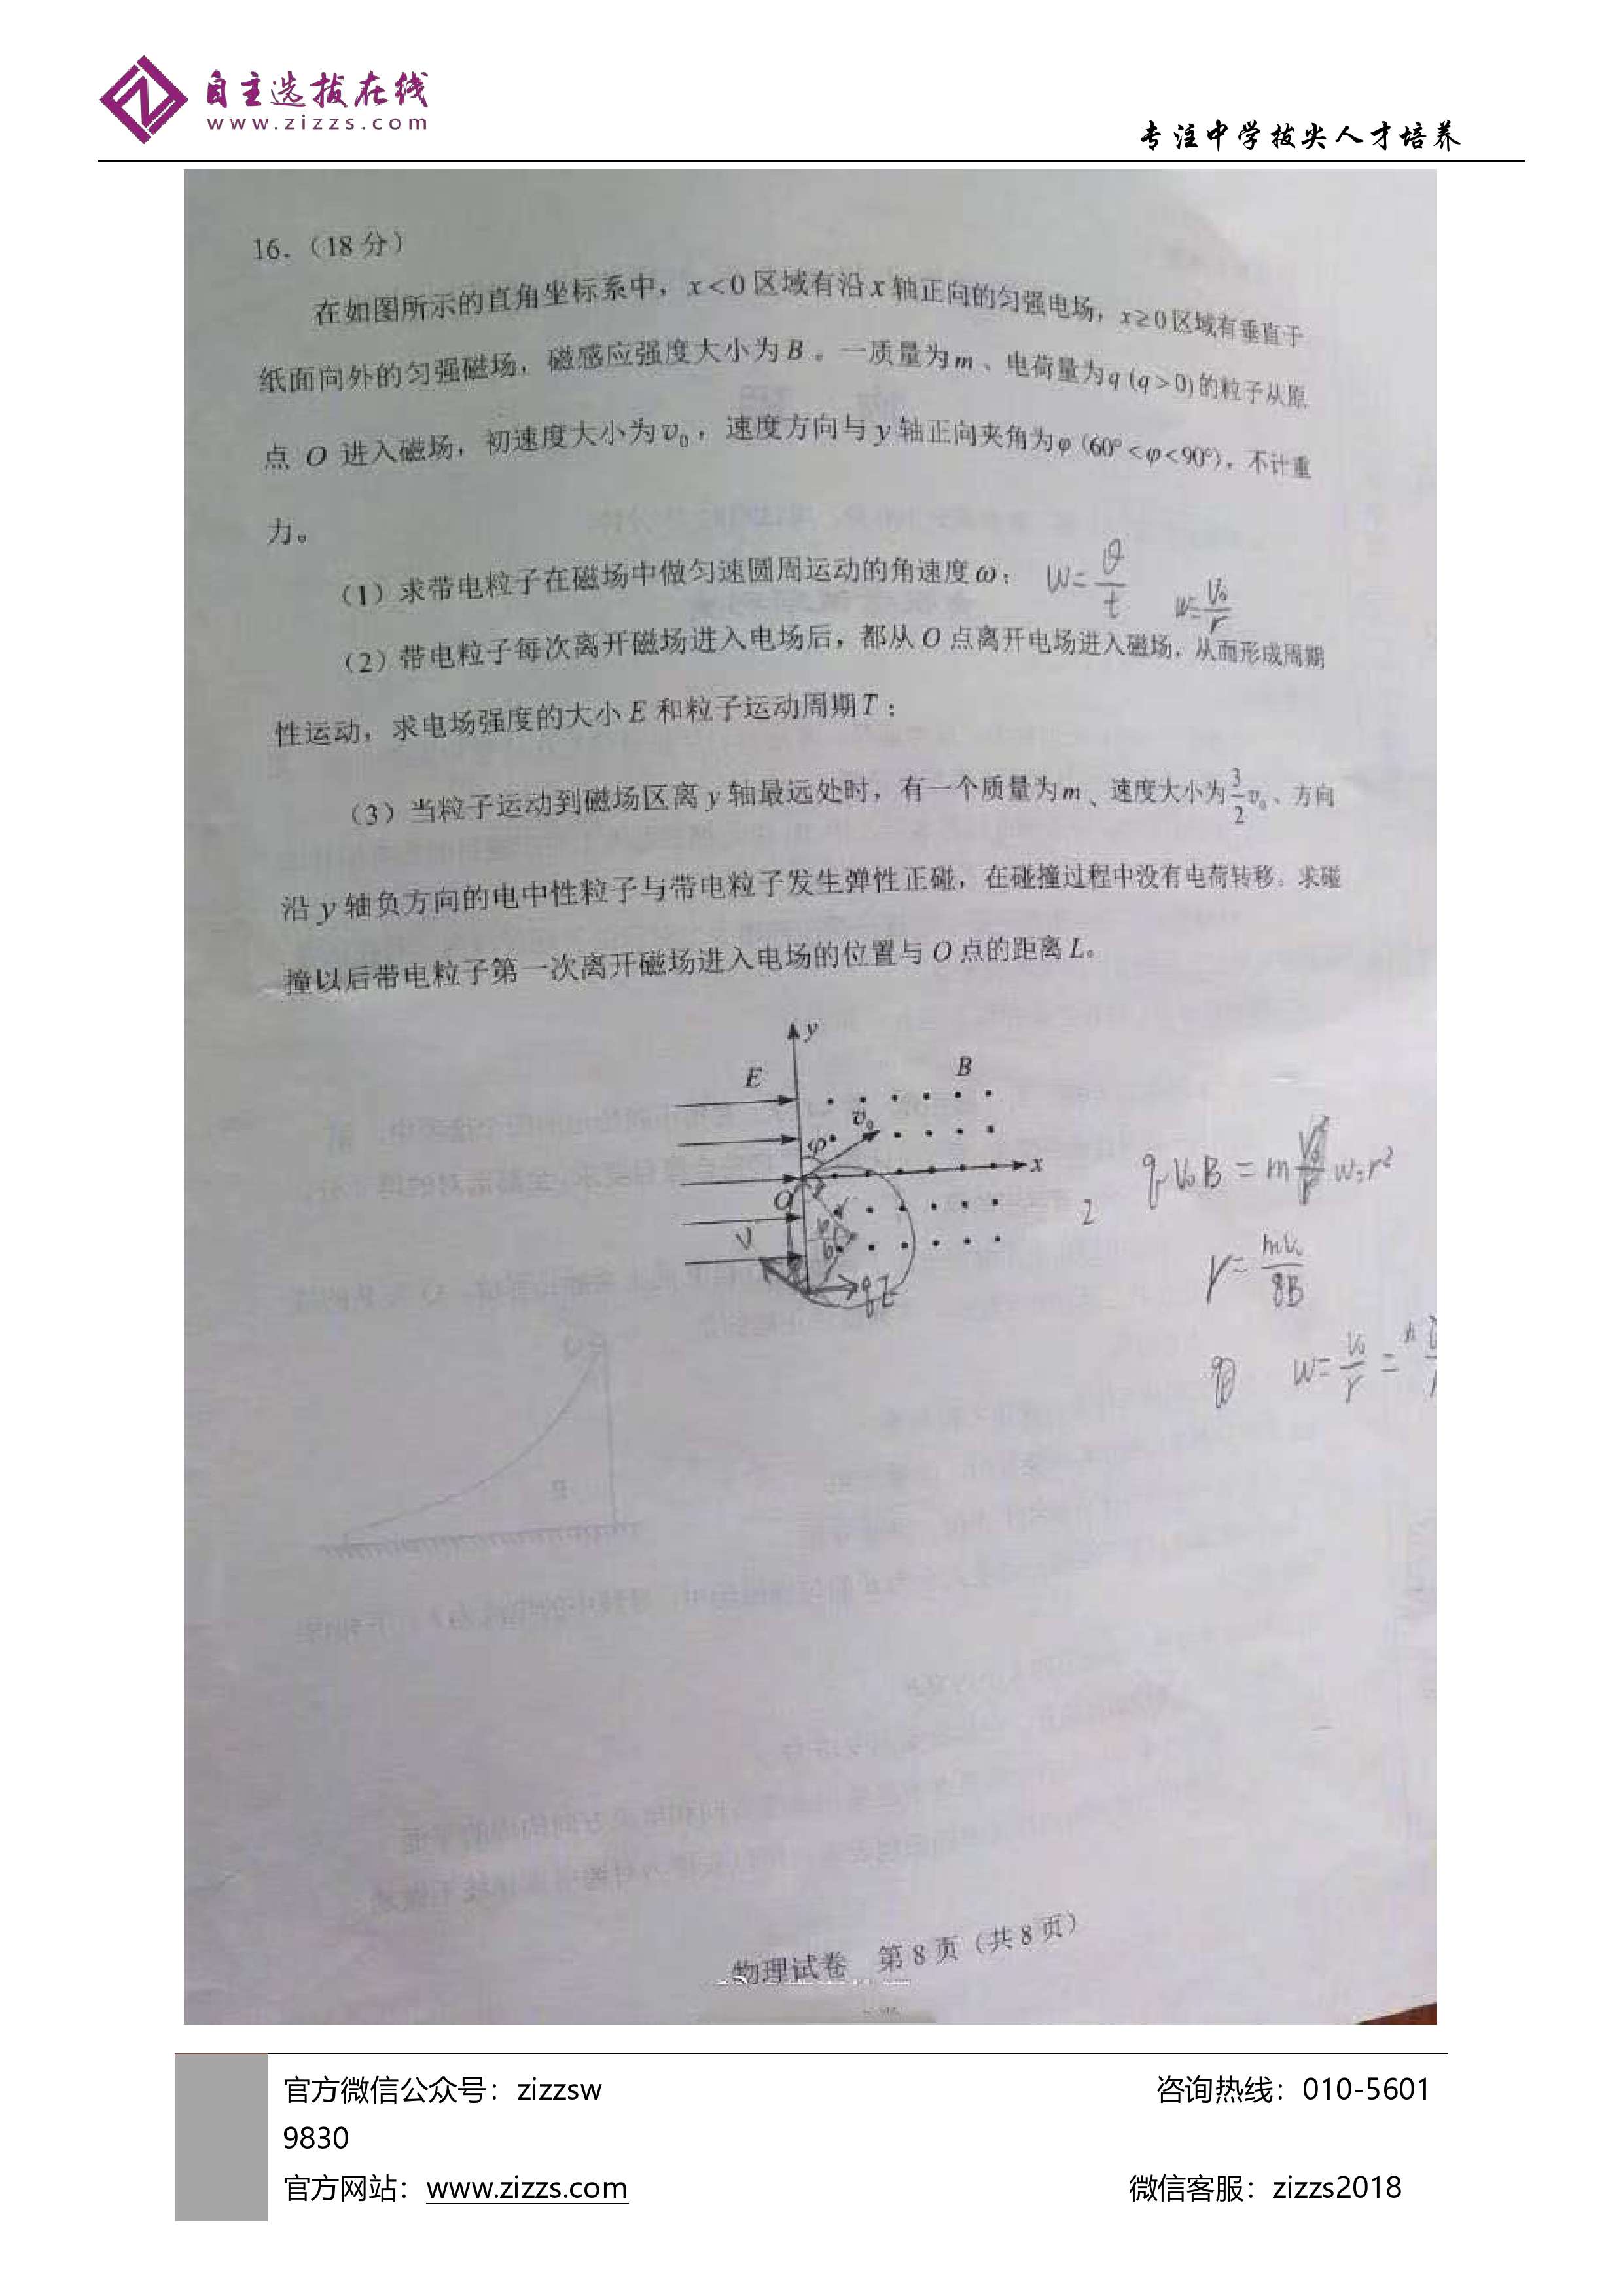 自主选拔在线
www.zizzs.com
专注中学拔尖人才培养
16.（18 分）
在如图所示的直角坐标系中，x<0区域有沿x轴正向的匀强电场，x≥0区域有垂直于
纸面向外的匀强磁场，磁感应强度大小为B。一质量为m、电荷量为q (q>0)的粒子从原
点 O 进入磁场，初速度大小为v₀，速度方向与y轴正向夹角为φ (60°<φ<90°)，不计重
力。
（1）求带电粒子在磁场中做匀速圆周运动的角速度ω； W=θ/t W=V₀/r
（2）带电粒子每次离开磁场进入电场后，都从O点离开电场进入磁场，从而形成周期
性运动，求电场强度的大小E和粒子运动周期T；
（3）当粒子运动到磁场区离y轴最远处时，有一个质量为m、速度大小为3/2 v₀、方向
沿y轴负方向的电中性粒子与带电粒子发生弹性正碰，在碰撞过程中没有电荷转移。求碰
撞以后带电粒子第一次离开磁场进入电场的位置与O点的距离L。
y
E
B
v₀
φ
x
O
V
qE
2
r=mv₀/qB
物理试卷 第8页（共8页）
官方微信公众号：zizzsw 咨询热线：010-5601
9830
官方网站：www.zizzs.com 微信客服：zizzs2018